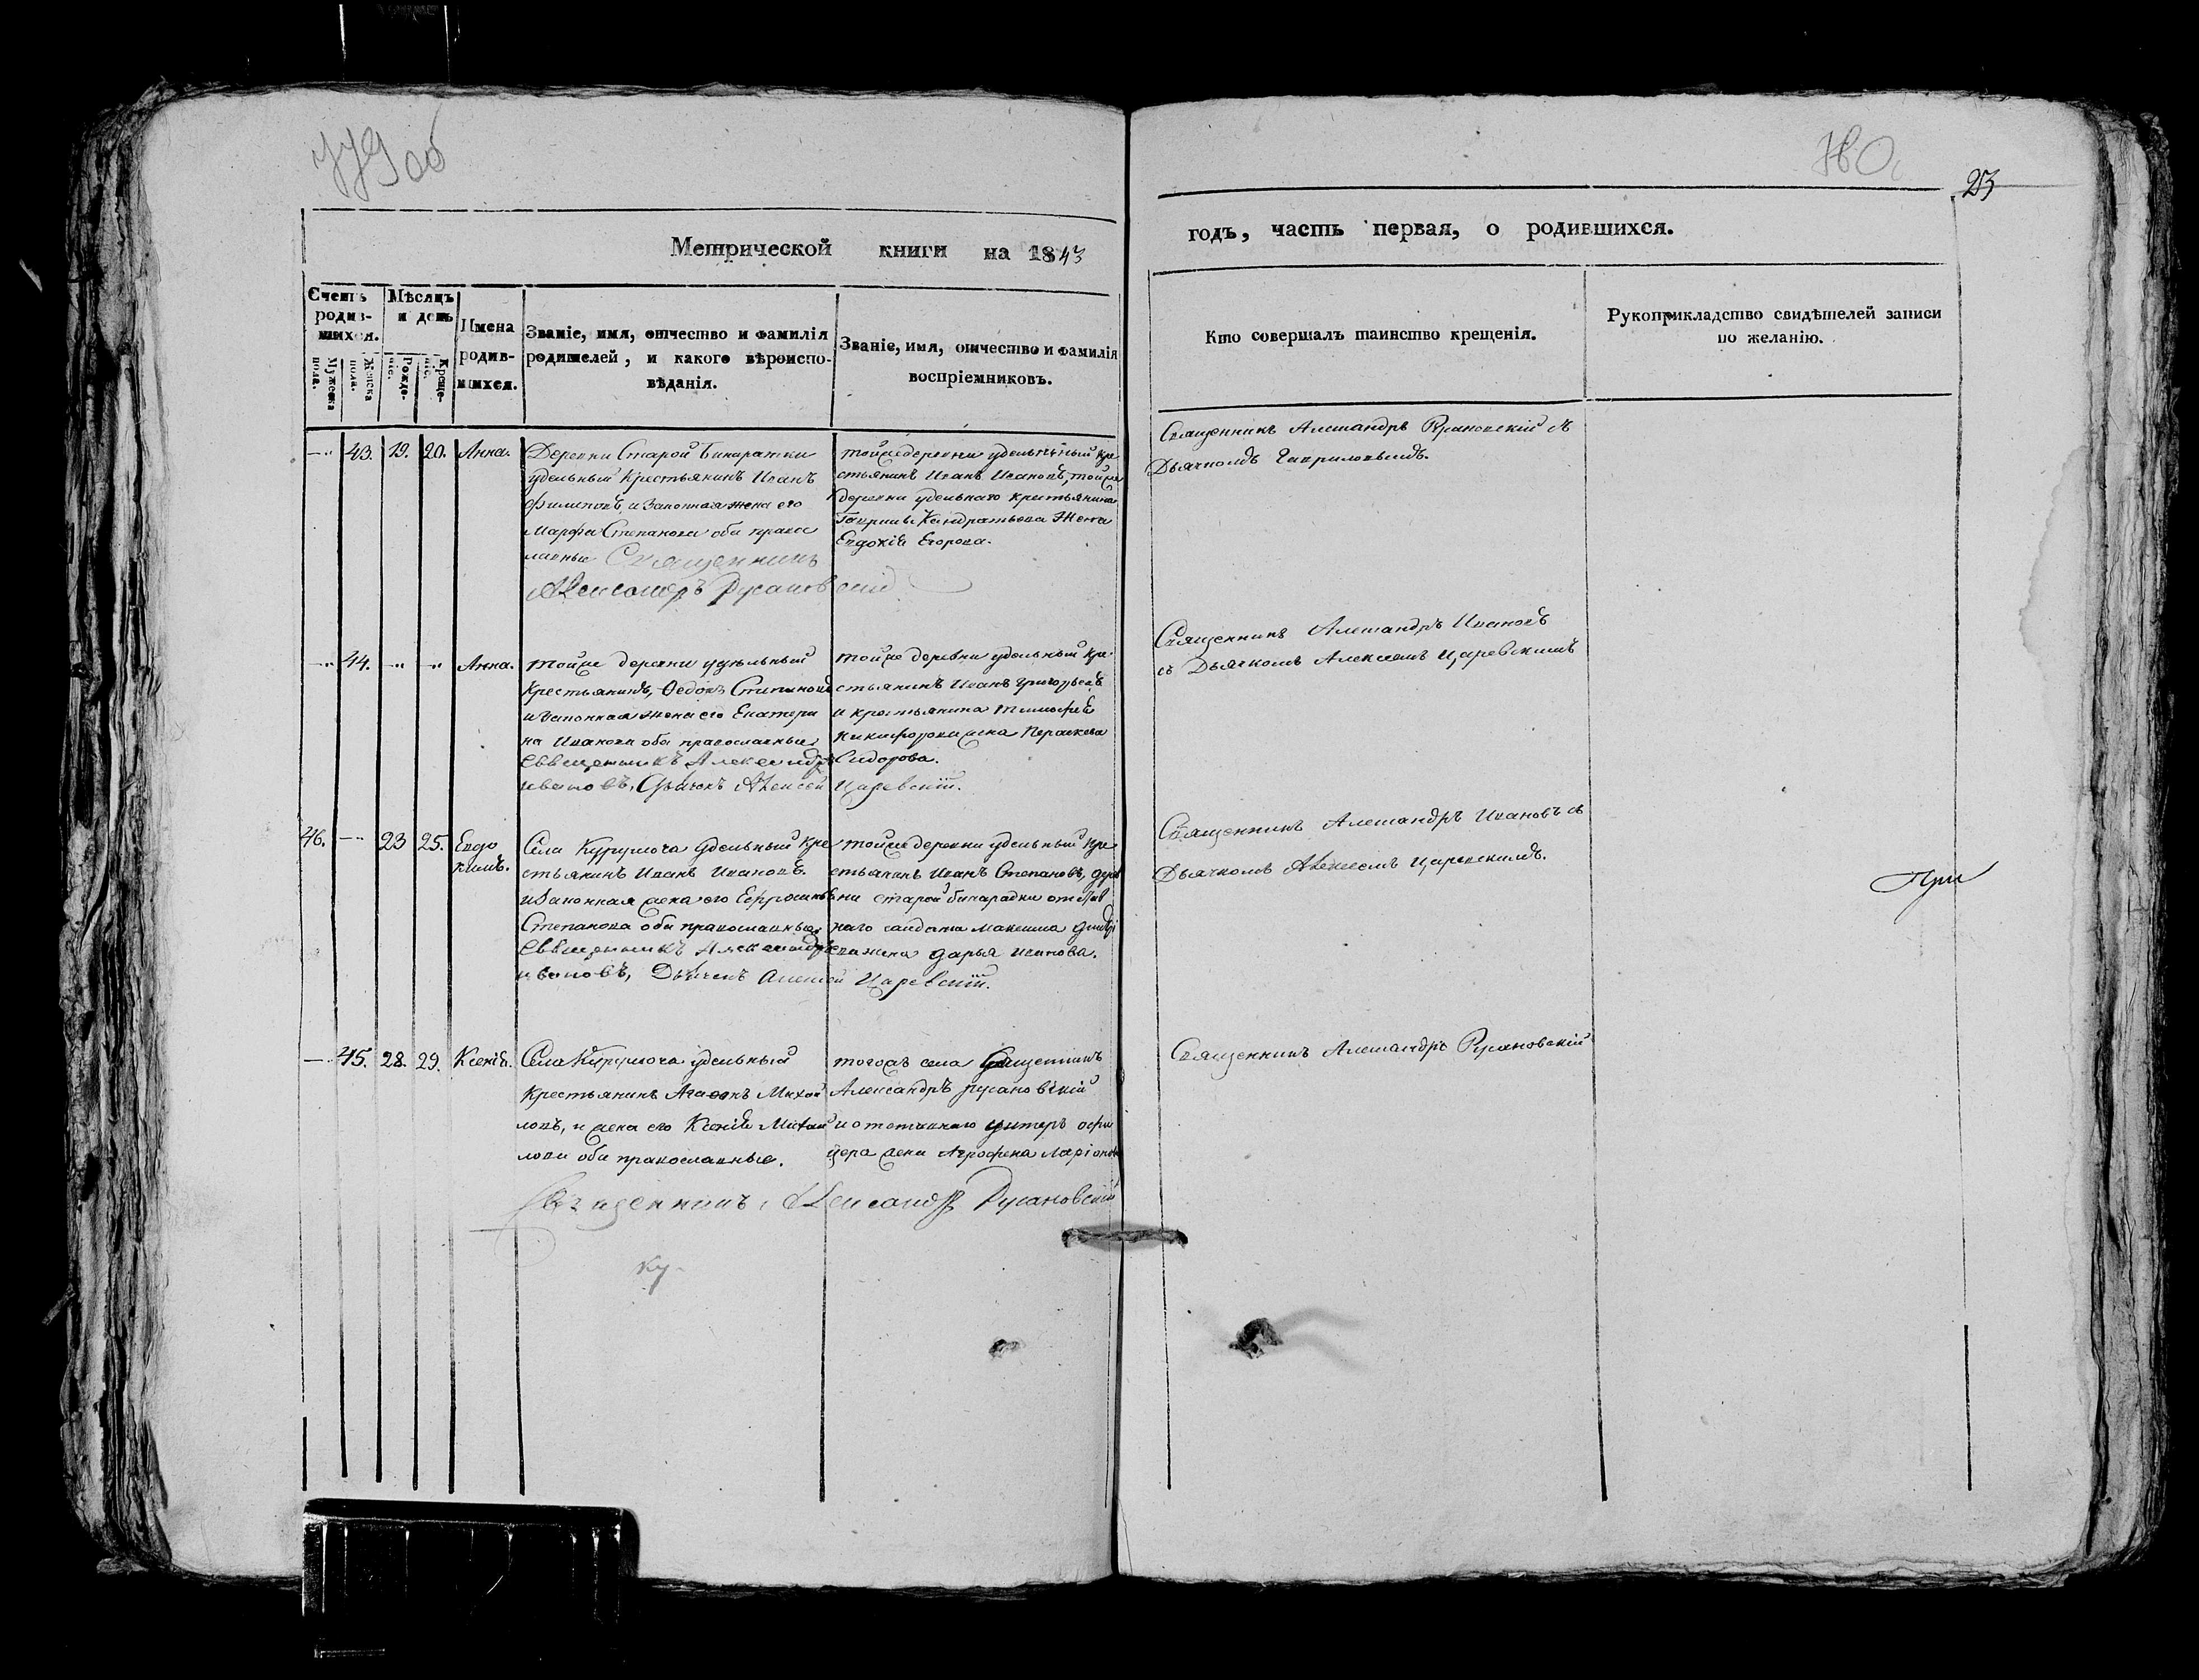 об
23
Метрической книги на 1843
годъ, часть первая, о родившихся.
Счетъ родив-шихся.
Мужеска пола.
Женска пола.
Мѣсяцъ и день
Рожде-нiе.
Креще-нiе.
Имена родив-шихся.
Званіе, имя, отчество и фамилія
родителей, и какого вѣроиспо-
вѣданія.
Званіе, имя, отчество и фамилія
воспріемниковъ.
Кто совершалъ таинство крещенія.
Рукоприкладство свидѣтелей записи
по желанію.
43. 19. 20. Анна.
Деревни Старой Бинарадки
удельный Крестьянинъ Иванъ
Филиповъ, и Законная жена его
Марфа Степанова оба право
славные Священникъ
Александръ Русановскій
тойже деревни удельный кре
стьянинъ Иванъ Ивановъ, тойже
деревни удельнаго крестьянина
Гаврилы Кандратьева Жена
Евдокія Егорова.
Священникъ Александръ Русановскій съ
Дьячкомъ Гавриловымъ.
44. Анна.
тойже деревни удельный
Крестьянинъ, Ѳедоръ Степановъ
и Законная жена его Екатери
на Иванова оба православные
Священникъ Александръ
Ивановъ, Дьячекъ Алексей Царевскій.
тойже деревни удельный кре
стьянинъ Иванъ Григорьевъ
и крестьянина Тимофея
Никифорова жена Параскева
Сидорова.
Священникъ Александръ Ивановъ
съ Дьячкомъ Алексеемъ Царевскимъ
46. 23 25. Евдо
кимъ.
Села Курумоча Удельный Кре
стьянинъ Иванъ Ивановъ.
и Законная жена его Ефросинья
Степанова оба православные
Священникъ Александръ
Ивановъ, Дьячекъ Алексей Царевскій.
тойже деревни удельный кре
стьянинъ Иванъ Степановъ, дерев
ни старой бинарадки отстав
наго салдата Максима
жена Дарья Иванова.
Священникъ Александръ Ивановъ съ
Дьячкомъ Алексеемъ Царевскимъ.
При
45. 28. 29. Ксенія.
Села Курумоча удельный
Крестьянинъ Агафонъ Михай
ловъ, и жена его Ксенія Михай
лова оба православные.
тогожъ села Священникъ
Александръ Русановскій
и отставнаго унтеръ офи
цера жена Агрофена Ларіонова
Священникъ Александръ Русановскій
Священникъ, Александръ Русановскій
Ку-